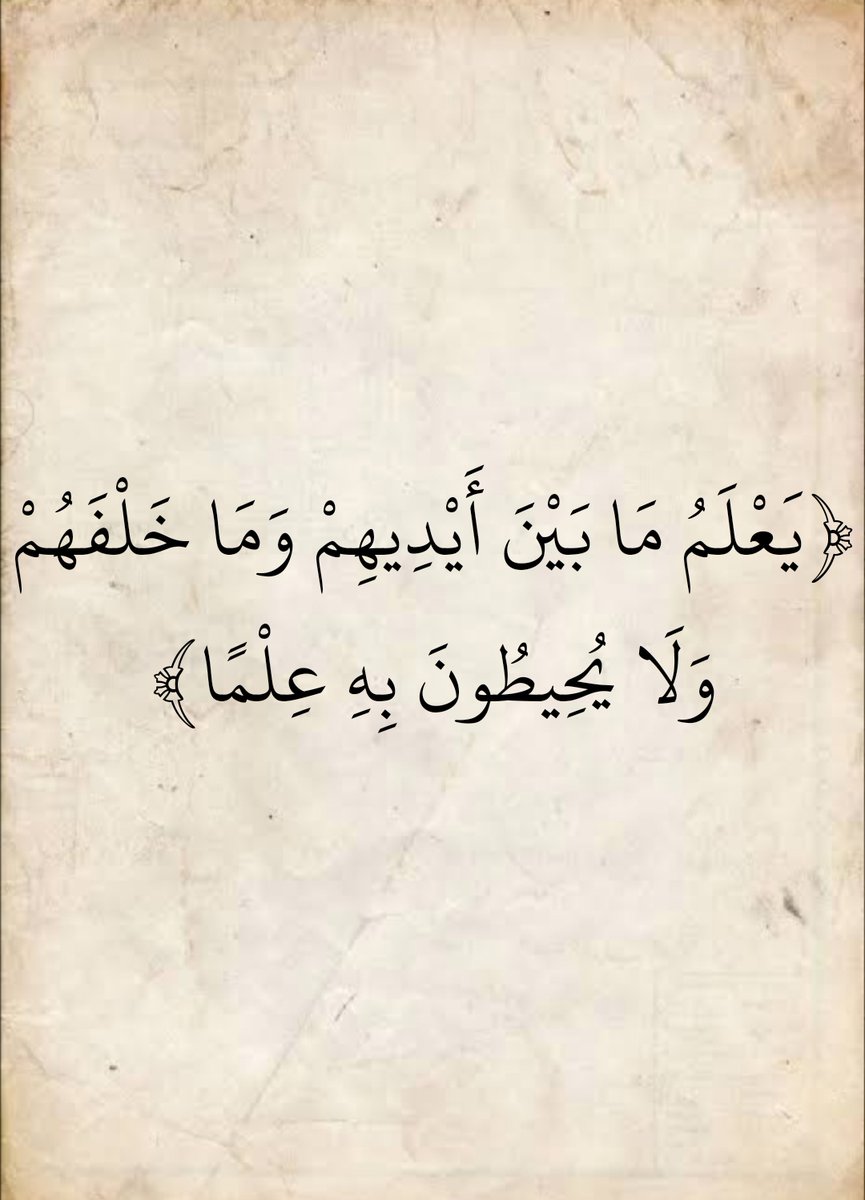 ﴿يَعْلَمُ مَا بَيْنَ أَيْدِيهِمْ وَمَا خَلْفَهُمْ
وَلَا يُحِيطُونَ بِهِ عِلْمًا﴾